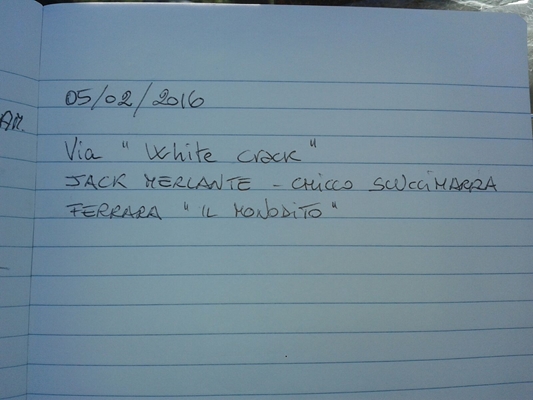 05/02/2016
AM.
Via " White crack "
JACK MERCANTE - CHICCO SCUCCIMARRA
FERRARA " IL MONODITO "